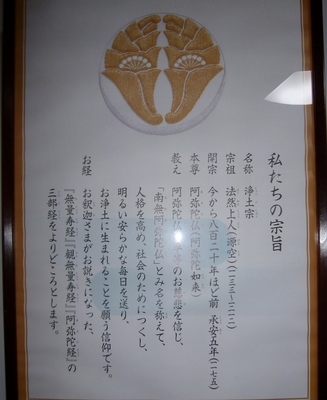 私たちの宗旨
名称 浄土宗
宗祖 法然上人(源空)(一一三三〜一二一二)
開宗 今から八百二十年ほど前 承安五年(一一七五)
本尊 阿弥陀仏(阿弥陀如来)
教え 阿弥陀仏の お慈悲を信じ、
「南無阿弥陀仏」とみ名を称えて、
人格を高め、社会のためにつくし、
明るい安らかな毎日を送り、
お浄土に生まれることを願う信仰です。
お経 お釈迦さまがお説きになった、
『無量寿経』『観無量寿経』『阿弥陀経』の
三部経をよりどころとします。